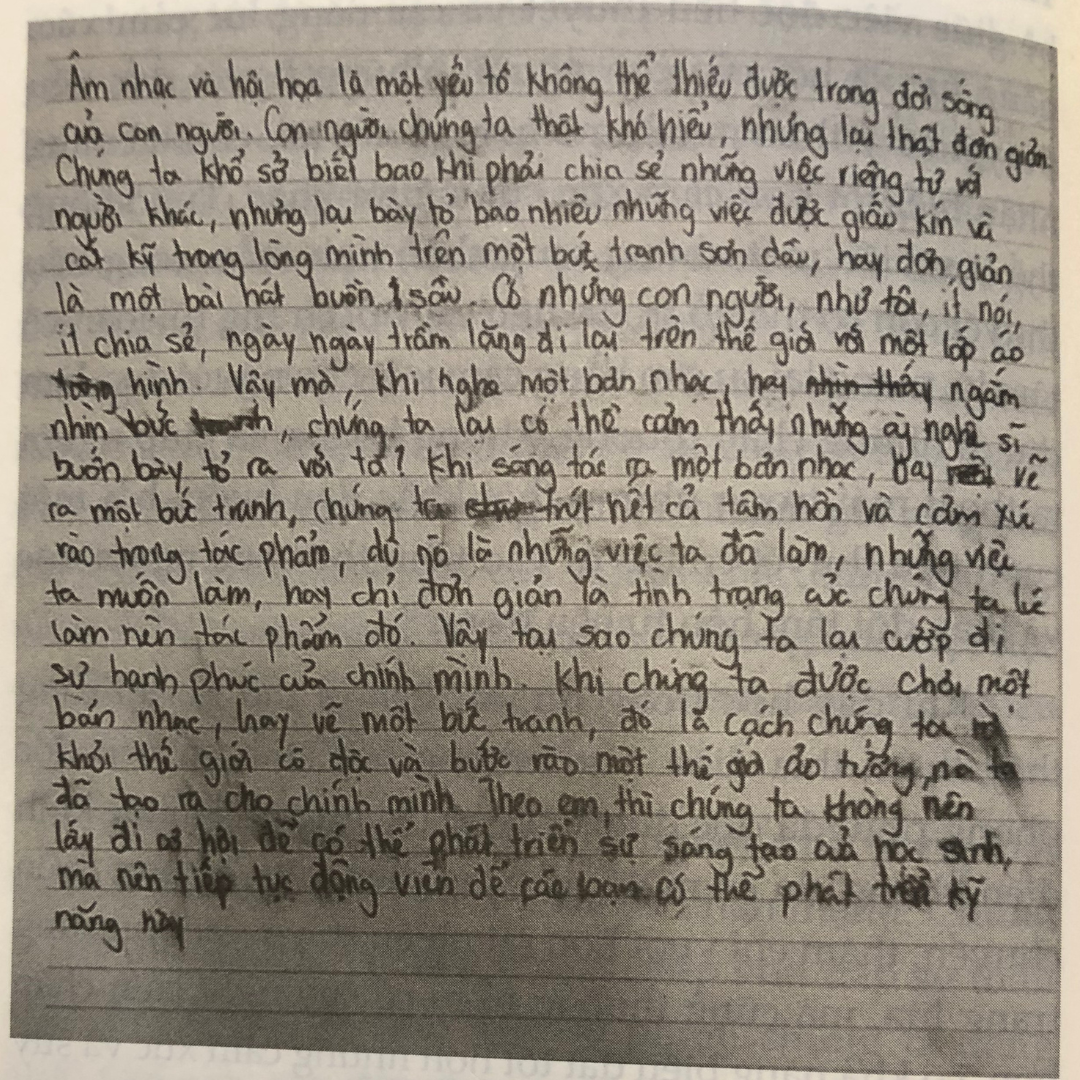 Âm nhạc và hội họa là một yếu tố không thể thiếu được trong đời sống
của con người. Con người chúng ta thật khó hiểu, nhưng lại thật đơn giản
Chúng ta khổ sở biết bao khi phải chia sẻ những việc riêng tư với
người khác, nhưng lại bày tỏ bao nhiêu những việc được giấu kín và
cất kỹ trong lòng mình trên một bức tranh sơn dầu, hay đơn giản
là một bài hát buồn sầu. Có những con người, như tôi, ít nói,
ít chia sẻ, ngày ngày trầm lặng đi lại trên thế giới với một lớp áo
hình. Vậy mà, khi nghe một bản nhạc, hay nhìn thấy ngắm
nhìn bức tranh, chúng ta lại có thể cảm thấy những gì nghệ sĩ
buồn bày tỏ ra với ta? Khi sáng tác ra một bản nhạc, hay vẽ
ra một bức tranh, chúng ta trút hết cả tâm hồn và cảm xúc
vào trong tác phẩm, dù nó là những việc ta đã làm, những việc
ta muốn làm, hay chỉ đơn giản là tình trạng của chúng ta lúc
làm nên tác phẩm đó. Vậy tại sao chúng ta lại cướp đi
sự hạnh phúc của chính mình. Khi chúng ta được chơi một
bản nhạc, hay vẽ một bức tranh, đó là cách chúng ta
khỏi thế giới cô độc và bước vào một thế giới ảo tưởng mà ta
đã tạo ra cho chính mình. Theo em, thì chúng ta không nên
lấy đi cơ hội để có thể phát triển sự sáng tạo của học sinh,
mà nên tiếp tục động viên để các bạn có thể phát triển kỹ
năng này